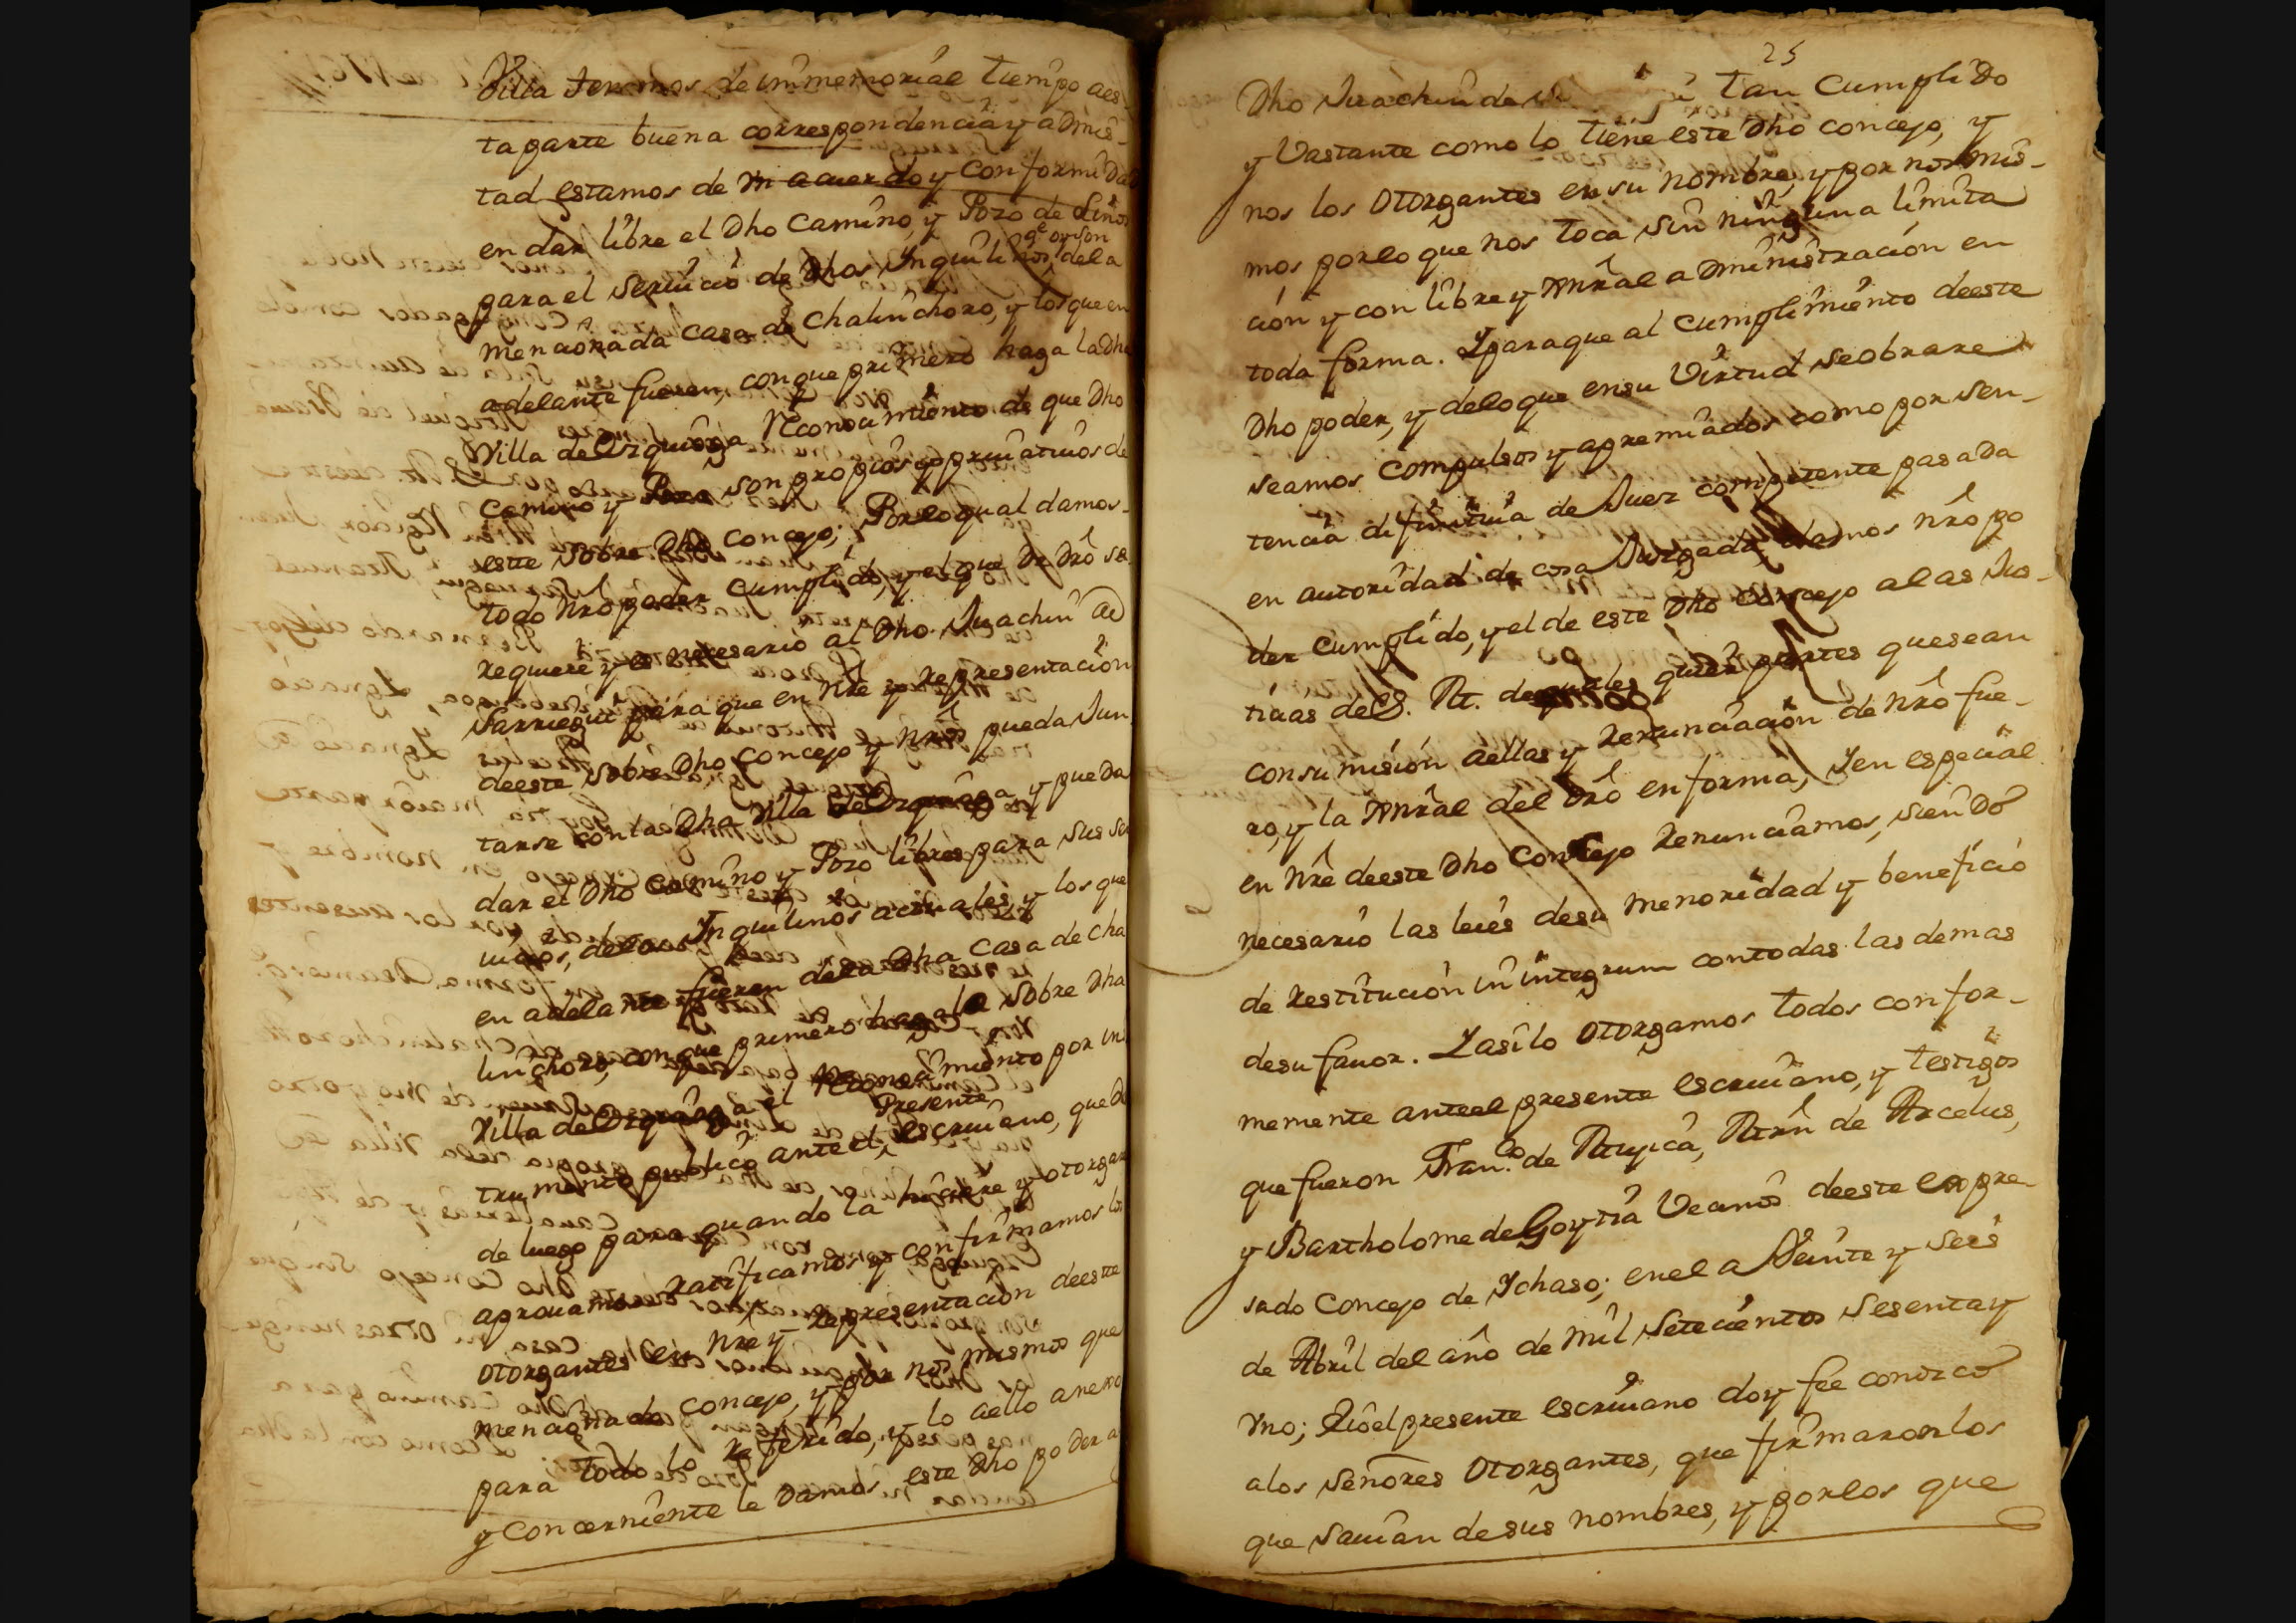 Villa tenemos de immemorial tiempo aes
ta parte buena correspondencia y admis-
tad estamos de un acuerdo y conformidad
en dar libre el Dho Camino, y Pozo de Linos
qe oy son
para el Servicio de Dhos Inquilinos de la
mencionada Casa de Chalinchoro, y los que en
adelante fueren, con que primero haga la Dha
Villa de Ezquioga Reconocimiento de que Dho
Camino y Pozo son propios y privativos de
este sobre Dho Concejo; Por lo qual damos
todo nro poder Cumplido, y el que de Dro se
requiere y es necesario al Dho Juachin de
Sarriegui para que en nre y representacion
de este sobre Dho Concejo y nros pueda Jun
tarse con la Dha Villa de Ezquioga y pueda
dar el Dho Camino y Pozo libres para sus ser
vicios, de los Inquilinos actuales, y los que
en adelante fueren de la Dha Casa de Cha
linchoro, con que primero haga la sobre Dha
Villa de Ezquioga el Reconocimiento por ins
Presente
trumento publico ante el escriuano, que de
de luego para quando la hiciere y otorgare
aprouamos ratificamos y confirmamos los
otorgantes en nre y representacion de este
mencionado Concejo, y por nos mismos que
para todo lo referido, y lo aello anexo
y Concerniente le damos este Dho poder a
25
Dho Juachin de tan Cumplido
y Vastante como lo tiene este Dho concejo, y
nos los otorgantes en su nombre, y por nos mis-
mos por lo que nos toca sin ninguna limita
ción y con libre y gnral administración en
toda forma. Y para que al cumplimiento de este
Dho poder, y de lo que en su Virtud se obrare
seamos compulsos y apremiados como por sen-
tencia difinitiua de Juez competente pasada
en autoridad de cosa Juzgada, damos nro po
der Cumplido, y el de este Dho Concejo a las Jus-
ticias de S. M. de quales quier partes que sean
con sumisión aellas y renunciación de nro fue-
ro, y la gnral del Dro en forma, Y en especial
en nre de este Dho Concejo renunciamos, siendo
necesario las leies de su menoridad y beneficio
de restitución in integrum con todas las demas
de su fauor. Y asi lo otorgamos todos confor-
memente ante el presente escriuano, y testigos
que fueron Fran.co de Muxica, Mrn de Arcelus,
y Bartholome de Goytia Vecinos de este expre-
sado Concejo de Ichaso; en el a Veinte y seis
de Abril del año de mil Setecientos Sesenta y
vno; E Yo el presente escriuano doy fee conozco
a los Señores otorgantes, que firmaron los
que sauian de sus nombres, y por los que